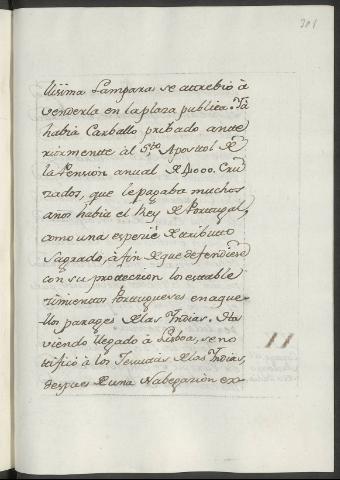 201
llisima Lampara se attrebió à
venderla en la plaza publica. Ya
habia Carballo pribado antte
riormentte àl S.to Aposttol de
la Pension anual de 4000. Cru
zados, que le pagaba muchos
años habia el Rey de Portugal,
como una especie de tributo
sagrado, à fin de que defendiese
con su protteccion los estable
zimientos Portugueses en aque
llos parages de las Indias. Ha
viendo llegado à Lisboa, se no
tificó à los Jesuitas de las Indias,
despues de una Nabegazion ex-